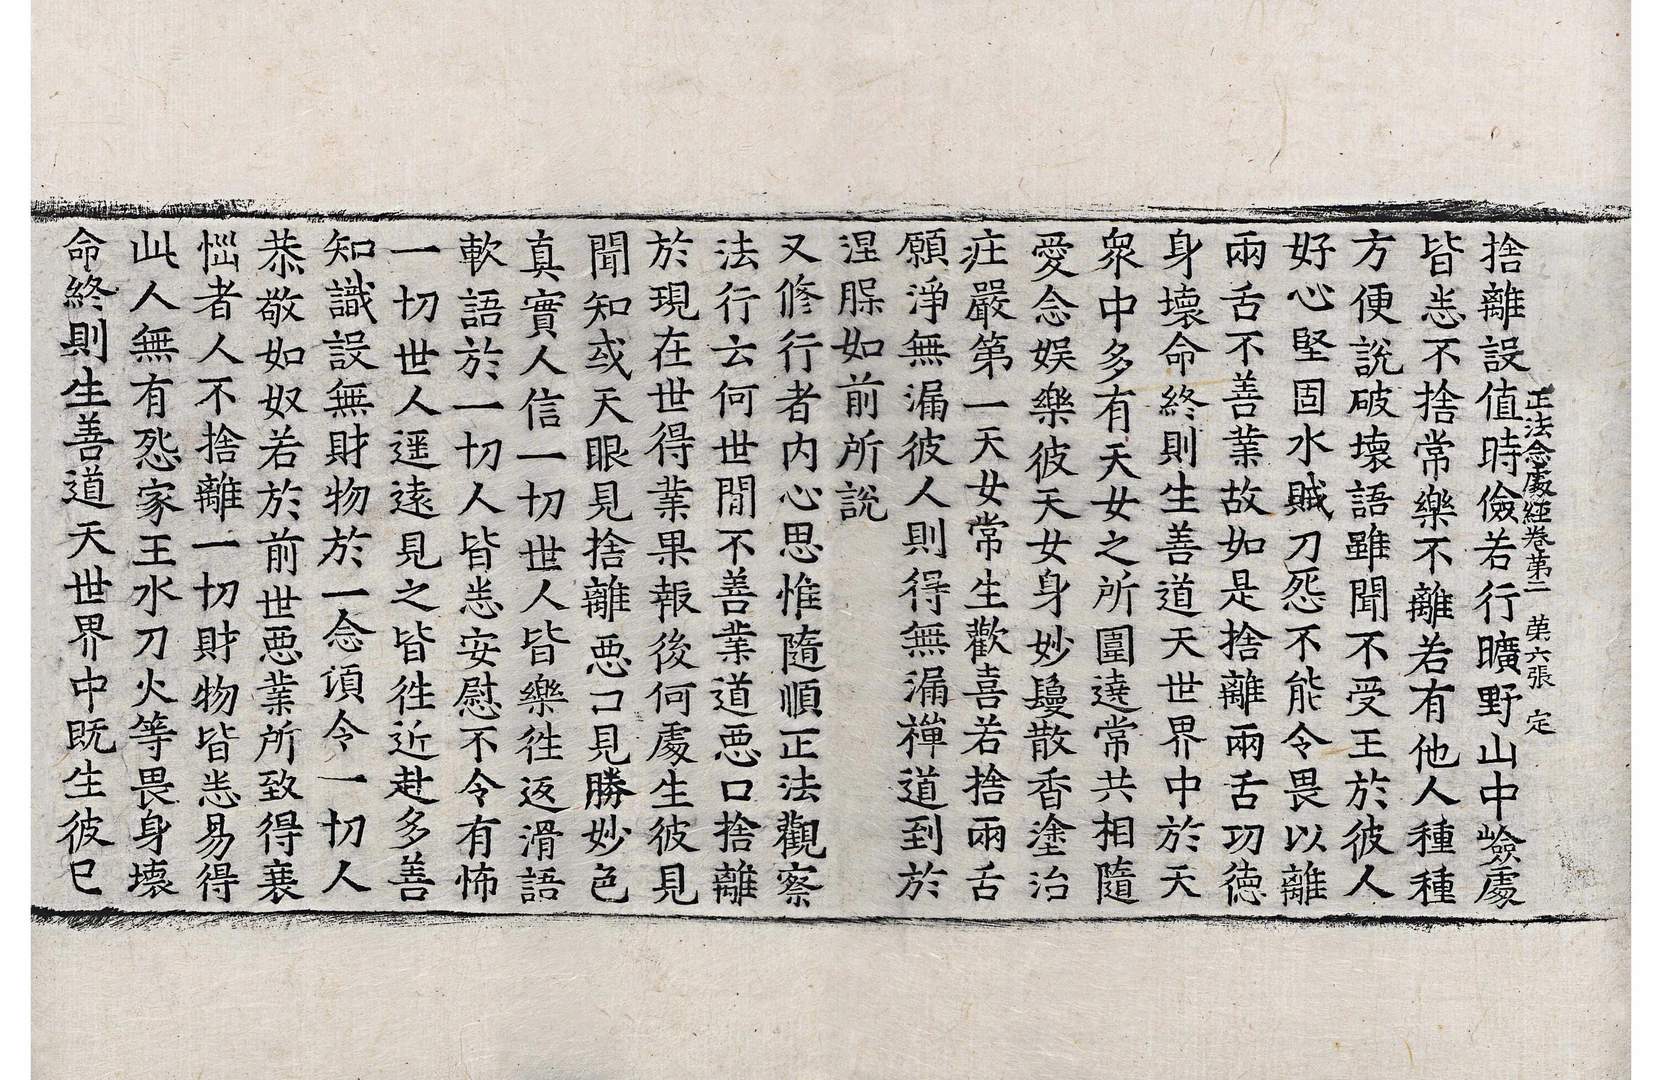 正法念處經卷第二　第六張　定
捨離設值時儉若行曠野山中嶮處
皆悉不捨常樂不離若有他人種種
方便說破壞語雖聞不受王於彼人
好心堅固水賊刀怨不能令畏以離
兩舌不善業故如是捨離兩舌功德
身壞命終則生善道天世界中於天
衆中多有天女之所圍遶常共相隨
愛念娛樂彼天女身妙鬘散香塗治
莊嚴第一天女常生歡喜若捨兩舌
願淨無漏彼人則得無漏禪道到於
涅槃如前所說
又修行者內心思惟隨順正法觀察
法行云何世間不善業道惡口捨離
於現在世得業果報後何處生彼見
聞知或天眼見捨離惡口見勝妙色
真實人信一切世人皆樂往返滑語
軟語於一切人皆悉安慰不令有怖
一切世人遥遠見之皆往近赴多善
知識設無財物於一念頃令一切人
恭敬如奴若於前世惡業所致得衰
惱者人不捨離一切財物皆悉易得
此人無有怨家王水刀火等畏身壞
命終則生善道天世界中既生彼已